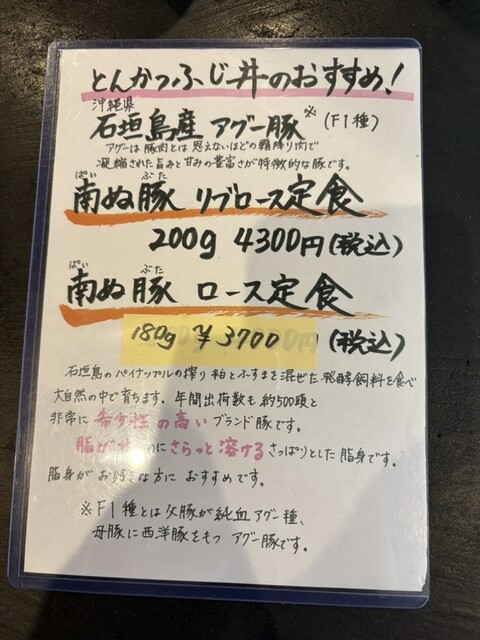 とんかつふじ井のおすすめ!
沖縄県
石垣島産 アグー豚※(F1種)
アグーは豚肉とは思えないほどの霜降り肉で
凝縮された旨みと甘みの豊富さが特徴的な豚です。
ぱい ぶた
南ぬ豚 リブロース定食
200g 4300円(税込)
ぱい ぶた
南ぬ豚 ロース定食
180g ¥3700 (税込)
石垣島のパイナップルの搾り粕とふすまを混ぜた発酵飼料を食べ
大自然の中で育ちます。年間出荷数も約500頭と
非常に希少性の高いブランド豚です。
脂が のにさらっと溶けるさっぱりとした脂身です。
脂身がお好きな方におすすめです。
※F1種とは父豚が純血アグー種、
母豚に西洋豚をもつ アグー豚です。